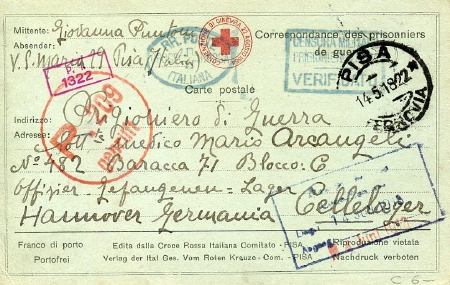 Mittente: Giovanna
Absender:
V. S. Marta 29 Pisa (Italia)
P.G.
1322
CROCE ROSSA
ITALIANA
CONVENZIONE DI GINEVRA 22 AGOSTO
Correspondance des prisonniers
de guerre
CENSURA MILITARE
VERIFICATO
PISA
14.5.18 22
FERROVIA
Carte postale
Indirizzo: Prigioniero di Guerra
Adresse: Dott. medico Mario Arcangeli
No 482 Baracca 71 Blocco: C
Offizier = Gefangenen = Lager Cellelager
Hannover Germania
209
geprüft
Franco di porto
Portofrei
Edita dalla Croce Rossa Italiana Comitato - PISA
Verlag der Ital Ges. Vom Roten Kreuze - Com. - PISA
Riproduzione vietata
Nachdruck verboten
C 6-